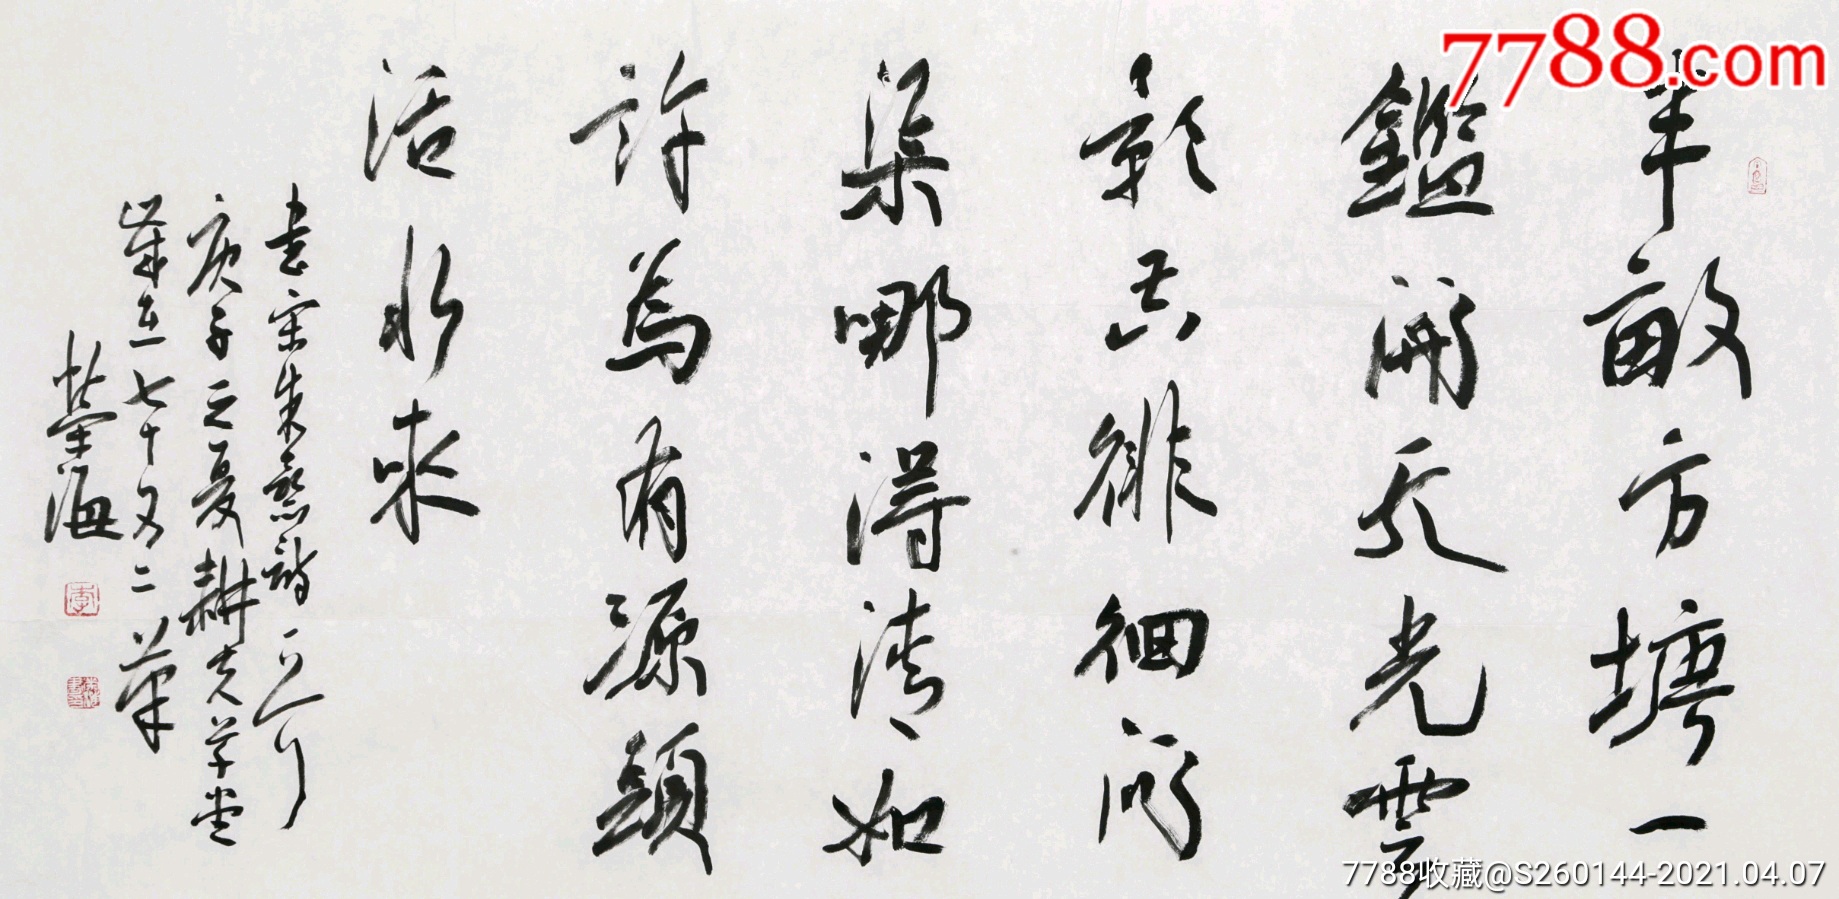 半畝方塘一
鑑開天光雲
影共徘徊問
渠哪得清如
許為有源頭
活水來
書宋朱熹詩
庚子之夏耕夫草堂
歲在七十又二筆
榮海
李
7788.com
7788收藏@S260144-2021.04.07